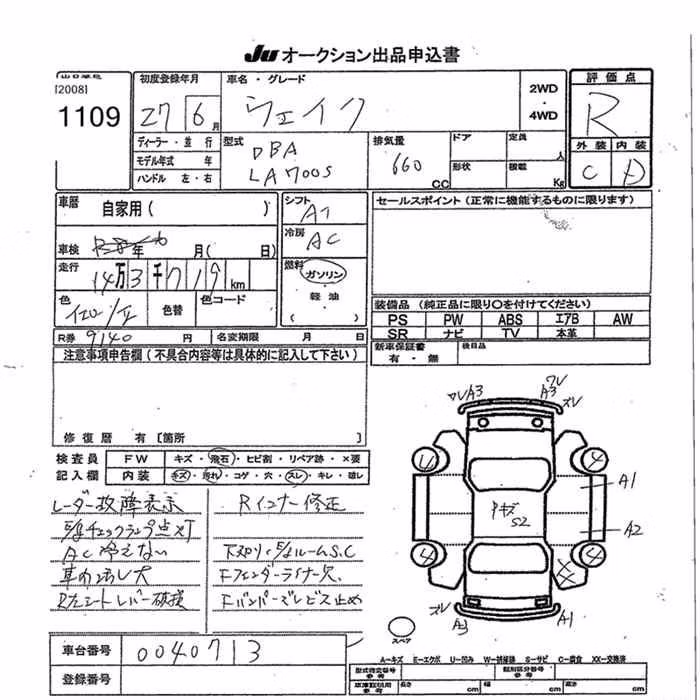 JU オークション出品申込書
[2008]
1109
初度登録年月
27 6月
ディーラー・並行
モデル年式 年
ハンドル 左・右
車名・グレード
ウェイク
型式
DBA
LA700S
排気量
660
CC
2WD
・
4WD
ドア
定員
人
形状
積載
Kg
評価点
R
外装 内装
C D
車歴
自家用( )
車検
年 月( 日)
走行
14万3千719km
色
色替
色コード
R券 9140 円 名変期限 月 日
シフト
AT
冷房
AC
燃料
ガソリン
・
軽油
( )
セールスポイント(正常に機能するものに限ります)
装備品(純正品に限り○を付けてください)
PS PW ABS エアB AW
SR ナビ TV 本革
新車保証書
有・無
後日品
注意事項申告欄(不具合内容等は具体的に記入して下さい)
修復歴 有[箇所
検査員
記入欄
FW キズ・飛石・ヒビ割・リペア跡・×要
内装 キズ・汚れ・コゲ・穴・スレ・キレ・破レ
レーダー故障表示
チェックランプ点灯
AC冷えない
R左シートレバー破損
Rインナー修正
下スリ・ルームS.C
Fフェンダーライナー欠.
Fバンパーズレビス止め
ワレA3
ワレ
A3
ズレ
4
A1
キズ
S2
A2
4
4
XX
ズレ
A3
A1
スペア
車台番号 0040713
登録番号
A-キズ E-エクボ U-凹み W-補修跡 S-サビ C-腐食 XX-交換済
型式指定番号
参考
類別区分番号
参考
長さ cm 幅 cm 高さ cm